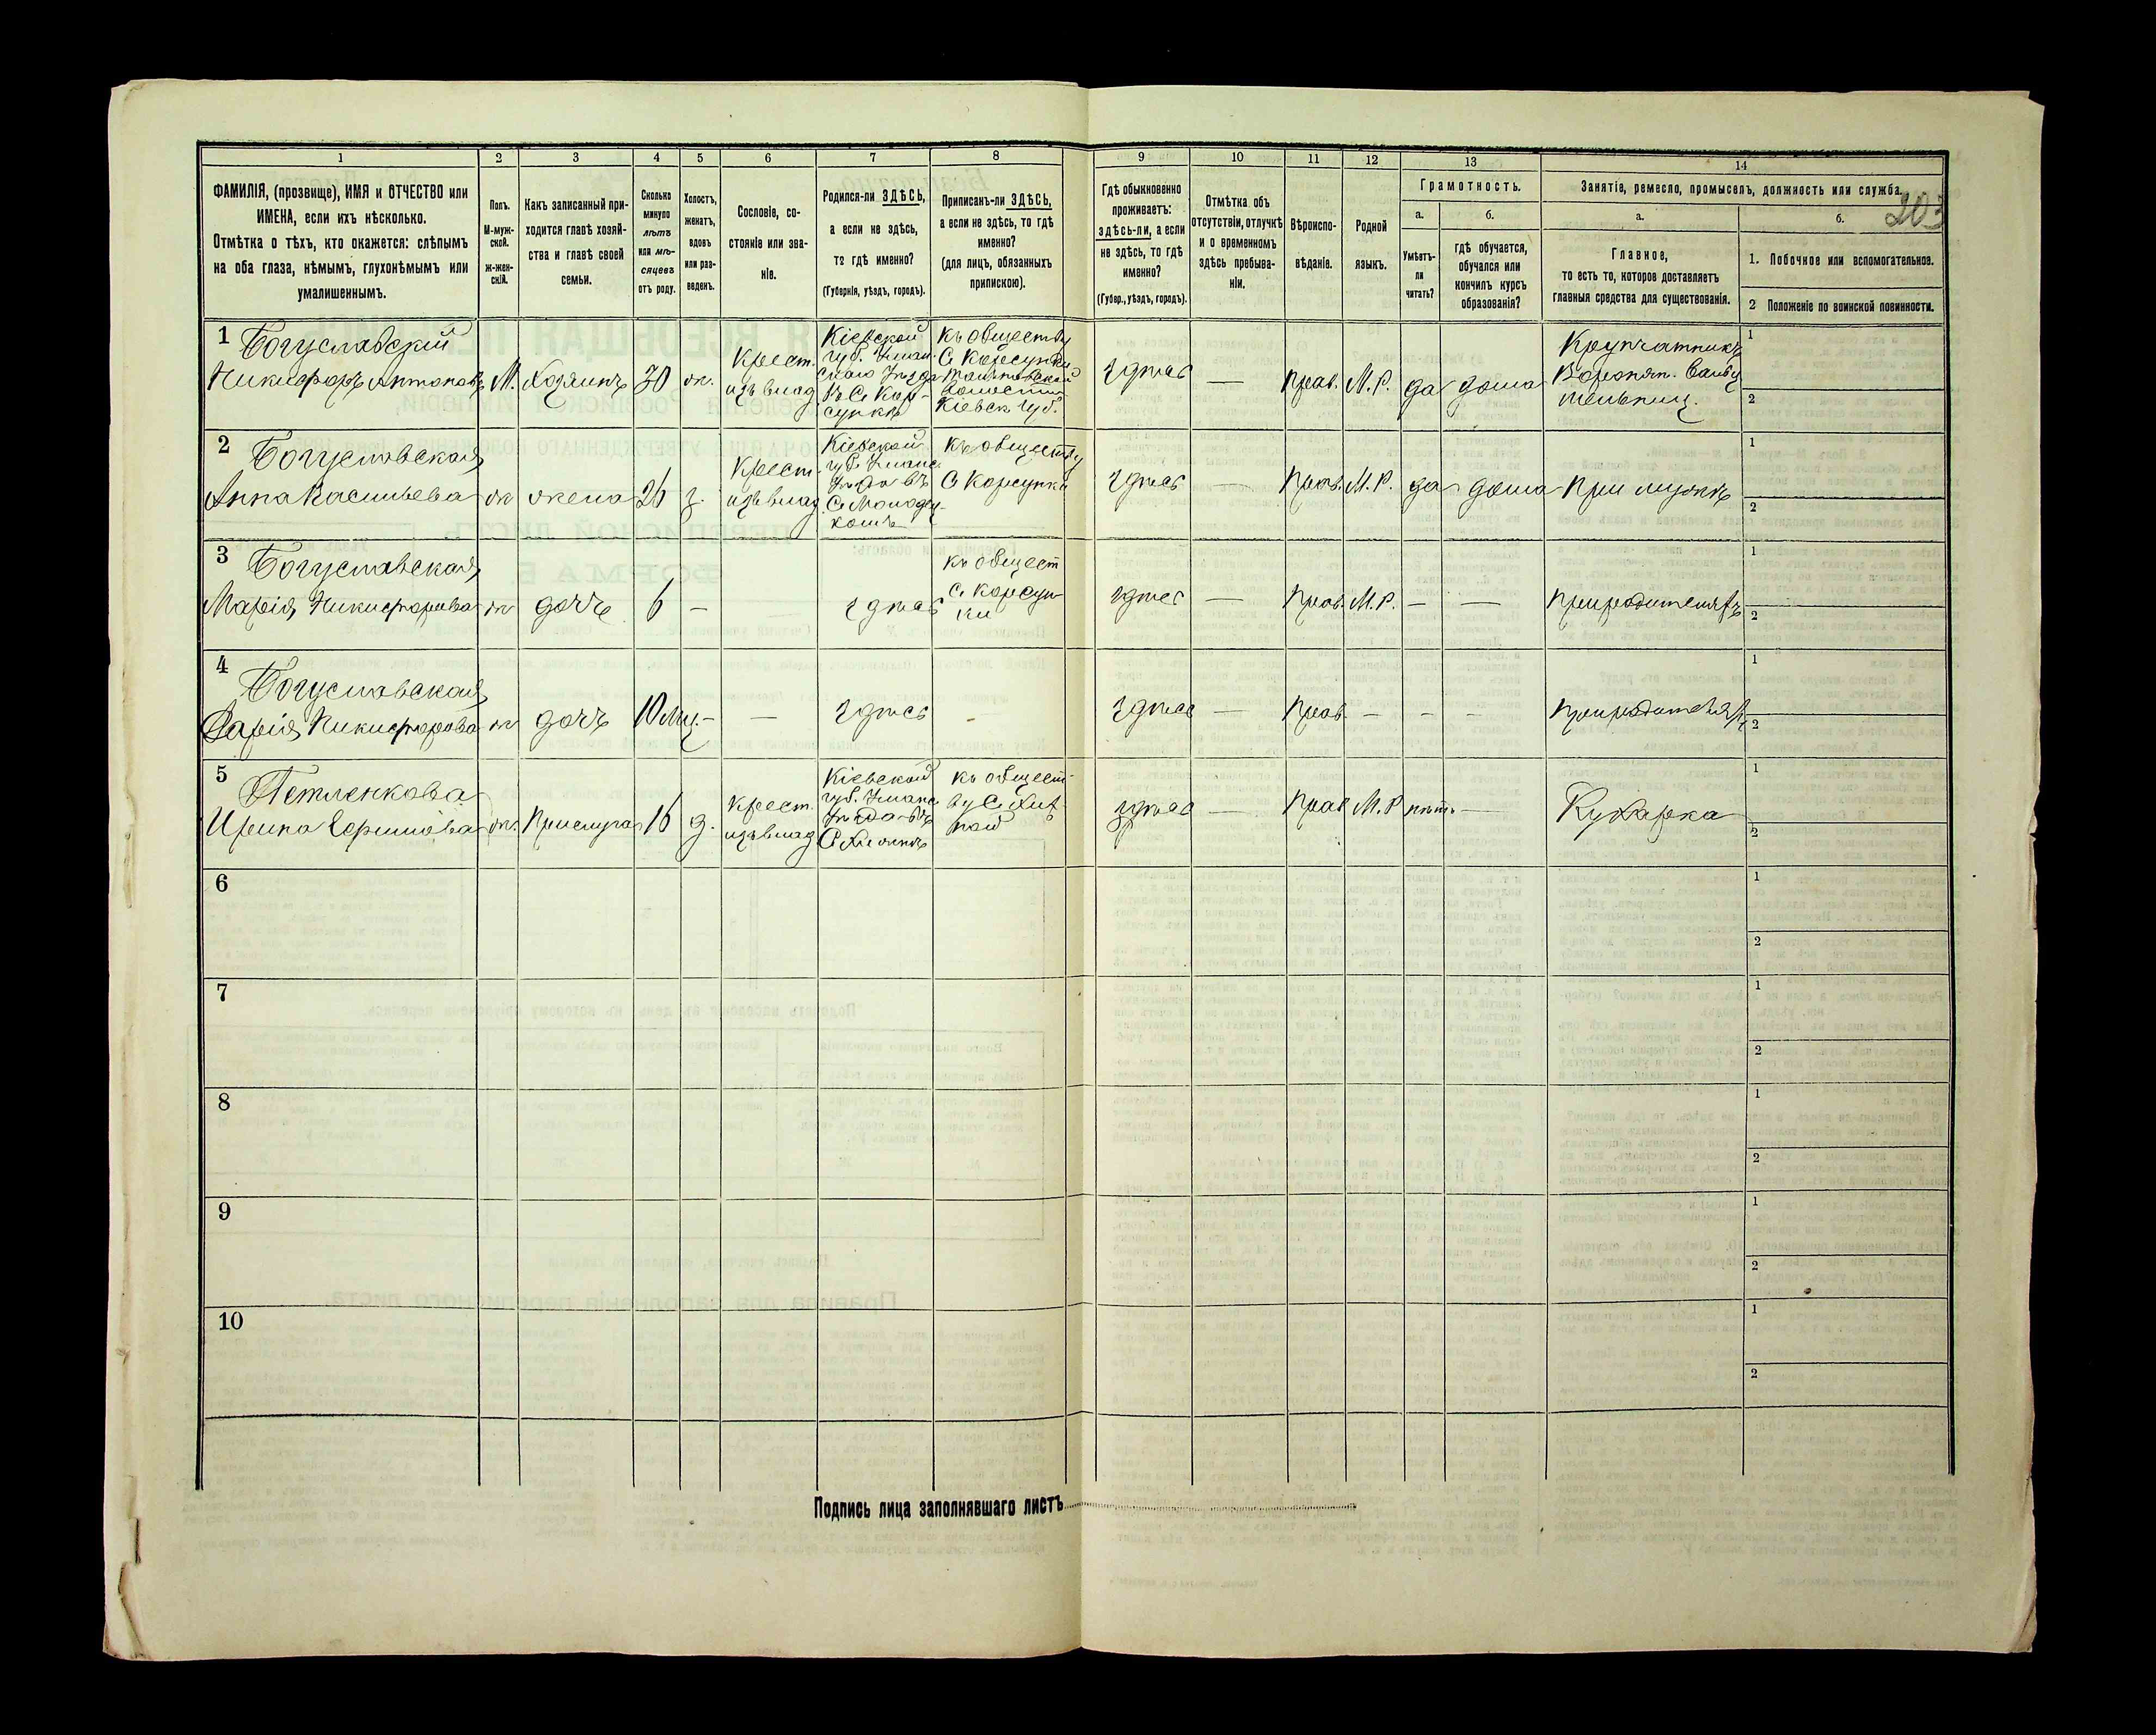 1
2
3
4
5
6
7
8
9
10
11
12
13
14
ФАМИЛІЯ, (прозвище), ИМЯ и ОТЧЕСТВО или
ИМЕНА, если ихъ нѣсколько.
Отмѣтка о тѣхъ, кто окажется: слѣпымъ
на оба глаза, нѣмымъ, глухонѣмымъ или
умалишеннымъ.
Полъ.
М-муж-
ской.
Ж-жен-
скій.
Какъ записанный при-
ходится главѣ хозяй-
ства и главѣ своей
семьи.
Сколько
минуло
лѣтъ
или мѣ-
сяцевъ
отъ роду.
Холостъ,
женатъ,
вдовъ
или раз-
веденъ.
Сословіе, со-
стояніе или зва-
ніе.
Родился-ли ЗДѢСЬ,
а если не здѣсь,
то гдѣ именно?
(Губернія, уѣздъ, городъ).
Приписанъ-ли ЗДѢСЬ,
а если не здѣсь, то гдѣ
именно?
(для лицъ, обязанныхъ
припискою).
Гдѣ обыкновенно
проживаетъ:
здѣсь-ли, а если
не здѣсь, то гдѣ
именно?
(Губер., уѣздъ, городъ).
Отмѣтка объ
отсутствіи, отлучкѣ
и о временномъ
здѣсь пребыва-
ніи.
Вѣроиспо-
вѣданіе.
Родной
языкъ.
Грамотность.
а.
б.
Умѣетъ-
ли
читать?
гдѣ обучается,
обучался или
кончилъ курсъ
образованія?
Занятіе, ремесло, промыселъ, должность или служба.
203
а.
б.
Главное,
то есть то, которое доставляетъ
главныя средства для существованія.
1. Побочное или вспомогательное.
2 Положеніе по воинской повинности.
1 Богуславскій
Никифоръ Антоновъ
М.
Хозяинъ
30
ж.
Крест.
изъ влад.
Кіевской
губ. Уман-
скаго уѣзда
Въ С. Кор-
сункѣ
Къ обществу
С. Корсунки
волости
Кіевск. губ.
здѣсь
—
Прав.
М. Р.
да
дома
Крупчатникъ
мельниц.
1
2
2 Богуславская
Анна Васильева
ж
жена
26
з.
Крест.
изъ влад.
Кіевской
губ. Уманс.
уѣзда въ
С. Молодец-
комъ
Къ обществу
С. Корсунки
здѣсь
—
Прав.
М. Р.
да
дома
При мужѣ
1
2
3 Богуславская
Марія Никифорова
ж
дочь
6
—
здѣсь
Къ общест
С. Корсун-
ки
здѣсь
—
Прав.
М. Р.
—
—
При родителяхъ
1
2
4 Богуславская
Дарія Никифорова
ж
дочь
10 Мц.
—
—
здѣсь
-
здѣсь
—
Прав.
—
-
-
При родителяхъ
1
2
5 Петленкова
Ирина Ефимова
ж.
Прислуга
16
д.
Крест.
изъ влад.
Кіевской
губ. Уманс
уѣзда въ
Къ общест-
ву С.
здѣсь
—
Прав
М. Р
нѣтъ
—
Кухарка
1
2
6
1
2
7
1
2
8
1
2
9
1
2
10
1
2
Подпись лица заполнявшаго листъ